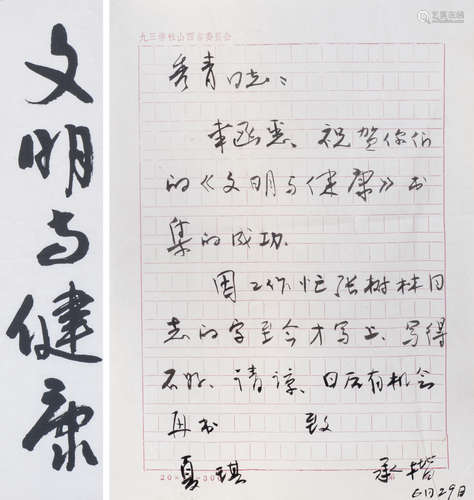 文明与健康
九三学社山西省委员会
秀青同志：
来函悉、祝贺你们
的《文明与健康》书
集的成功.
因工作忙张树林同
志的字至今才写上、写得
不好、请谅、日后有机会
再书 致
夏祺 承楷
6月29日